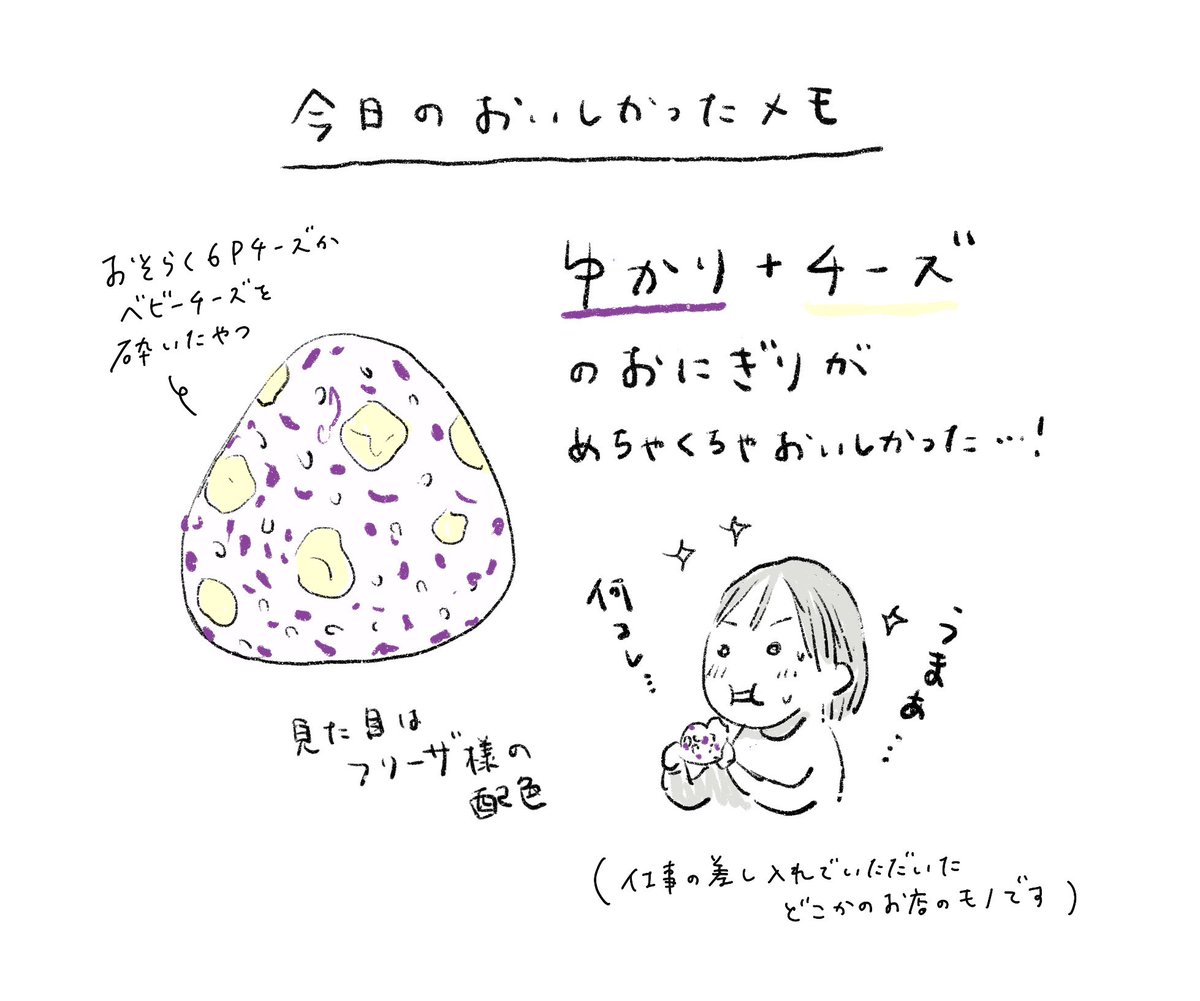 今日のおいしかったメモ
おそらく6Pチーズか
ベビーチーズを
砕いたやつ
ゆかり+チーズ
のおにぎりが
めちゃくちゃおいしかった…!
何コレ…
うまぁ…
見た目は
フリーザ様の
配色
(仕事の差し入れでいただいた
どこかのお店のモノです)